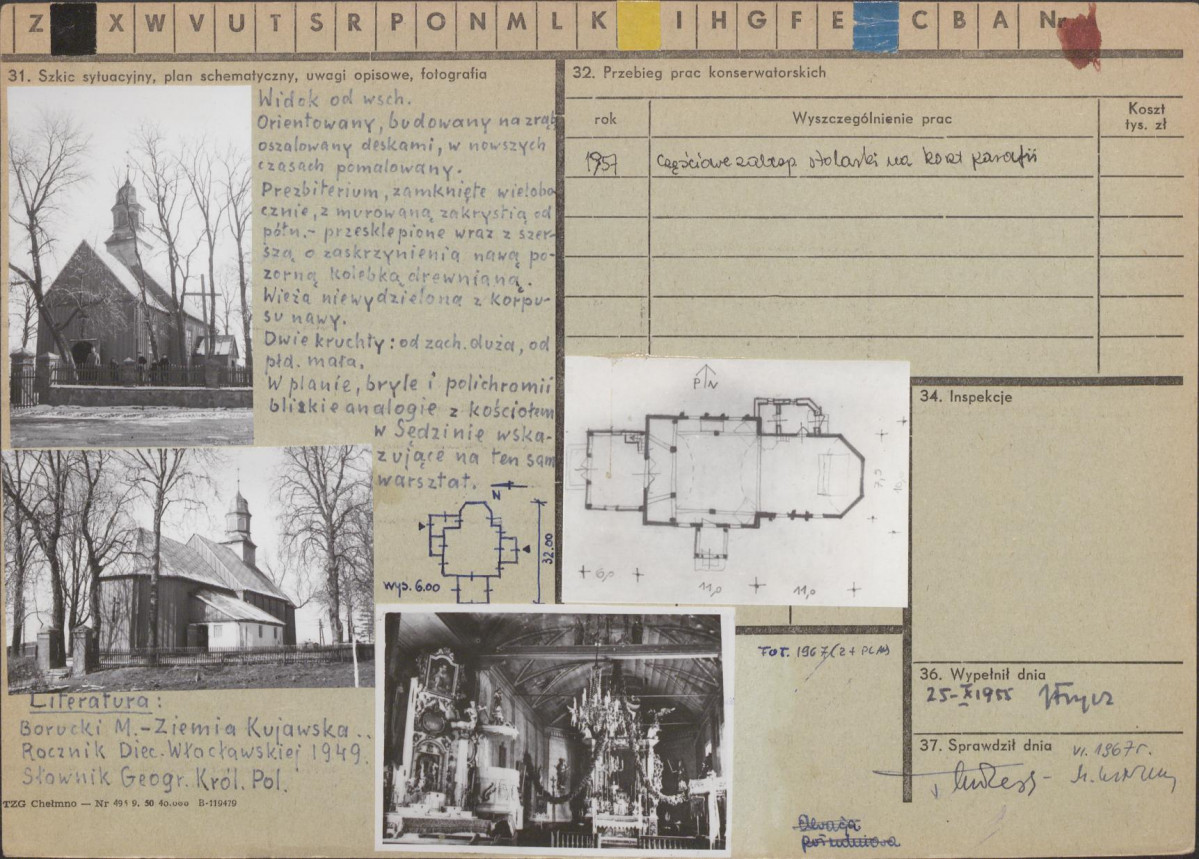 Z X W V U T S R P O N M L K I H G F E C B A Nr
31. Szkic sytuacyjny, plan schematyczny, uwagi opisowe, fotografia
Widok od wsch.
Orientowany, budowany na zrąb
oszalowany deskami, w nowszych
czasach pomalowany.
Prezbiterium, zamknięte wielobo
cznie, z murowaną zakrystią od
półn. - przesklepione wraz z szer-
szą o zaskrzynienia nawą po-
zorną kolebką drewnianą.
Wieża niewydzielona z korpu-
su nawy.
Dwie kruchty: od zach. duża, od
płd. mała.
W planie, bryle i polichromii
bliskie analogie z kościołem
w Sędzinie wska-
zujące na ten sam
warsztat.
N
32.00
wys. 6.00
Literatura:
Borucki M. - Ziemia Kujawska..
Rocznik Diec. Włocławskiej 1949.
Słownik Geogr. Król. Pol.
TZG Chełmno — Nr 495 9. 50 40.000 B-119479
32. Przebieg prac konserwatorskich
rok
Wyszczególnienie prac
Koszt
tys. zł
1957
Częściowe zabezp stolarki na koszt parafii
PN
6,0
11,0
11,0
7,5
Fot. 1967 (2 + plan)
34. Inspekcje
36. Wypełnił dnia
25-X 1955
37. Sprawdził dnia
VI. 1967 r.